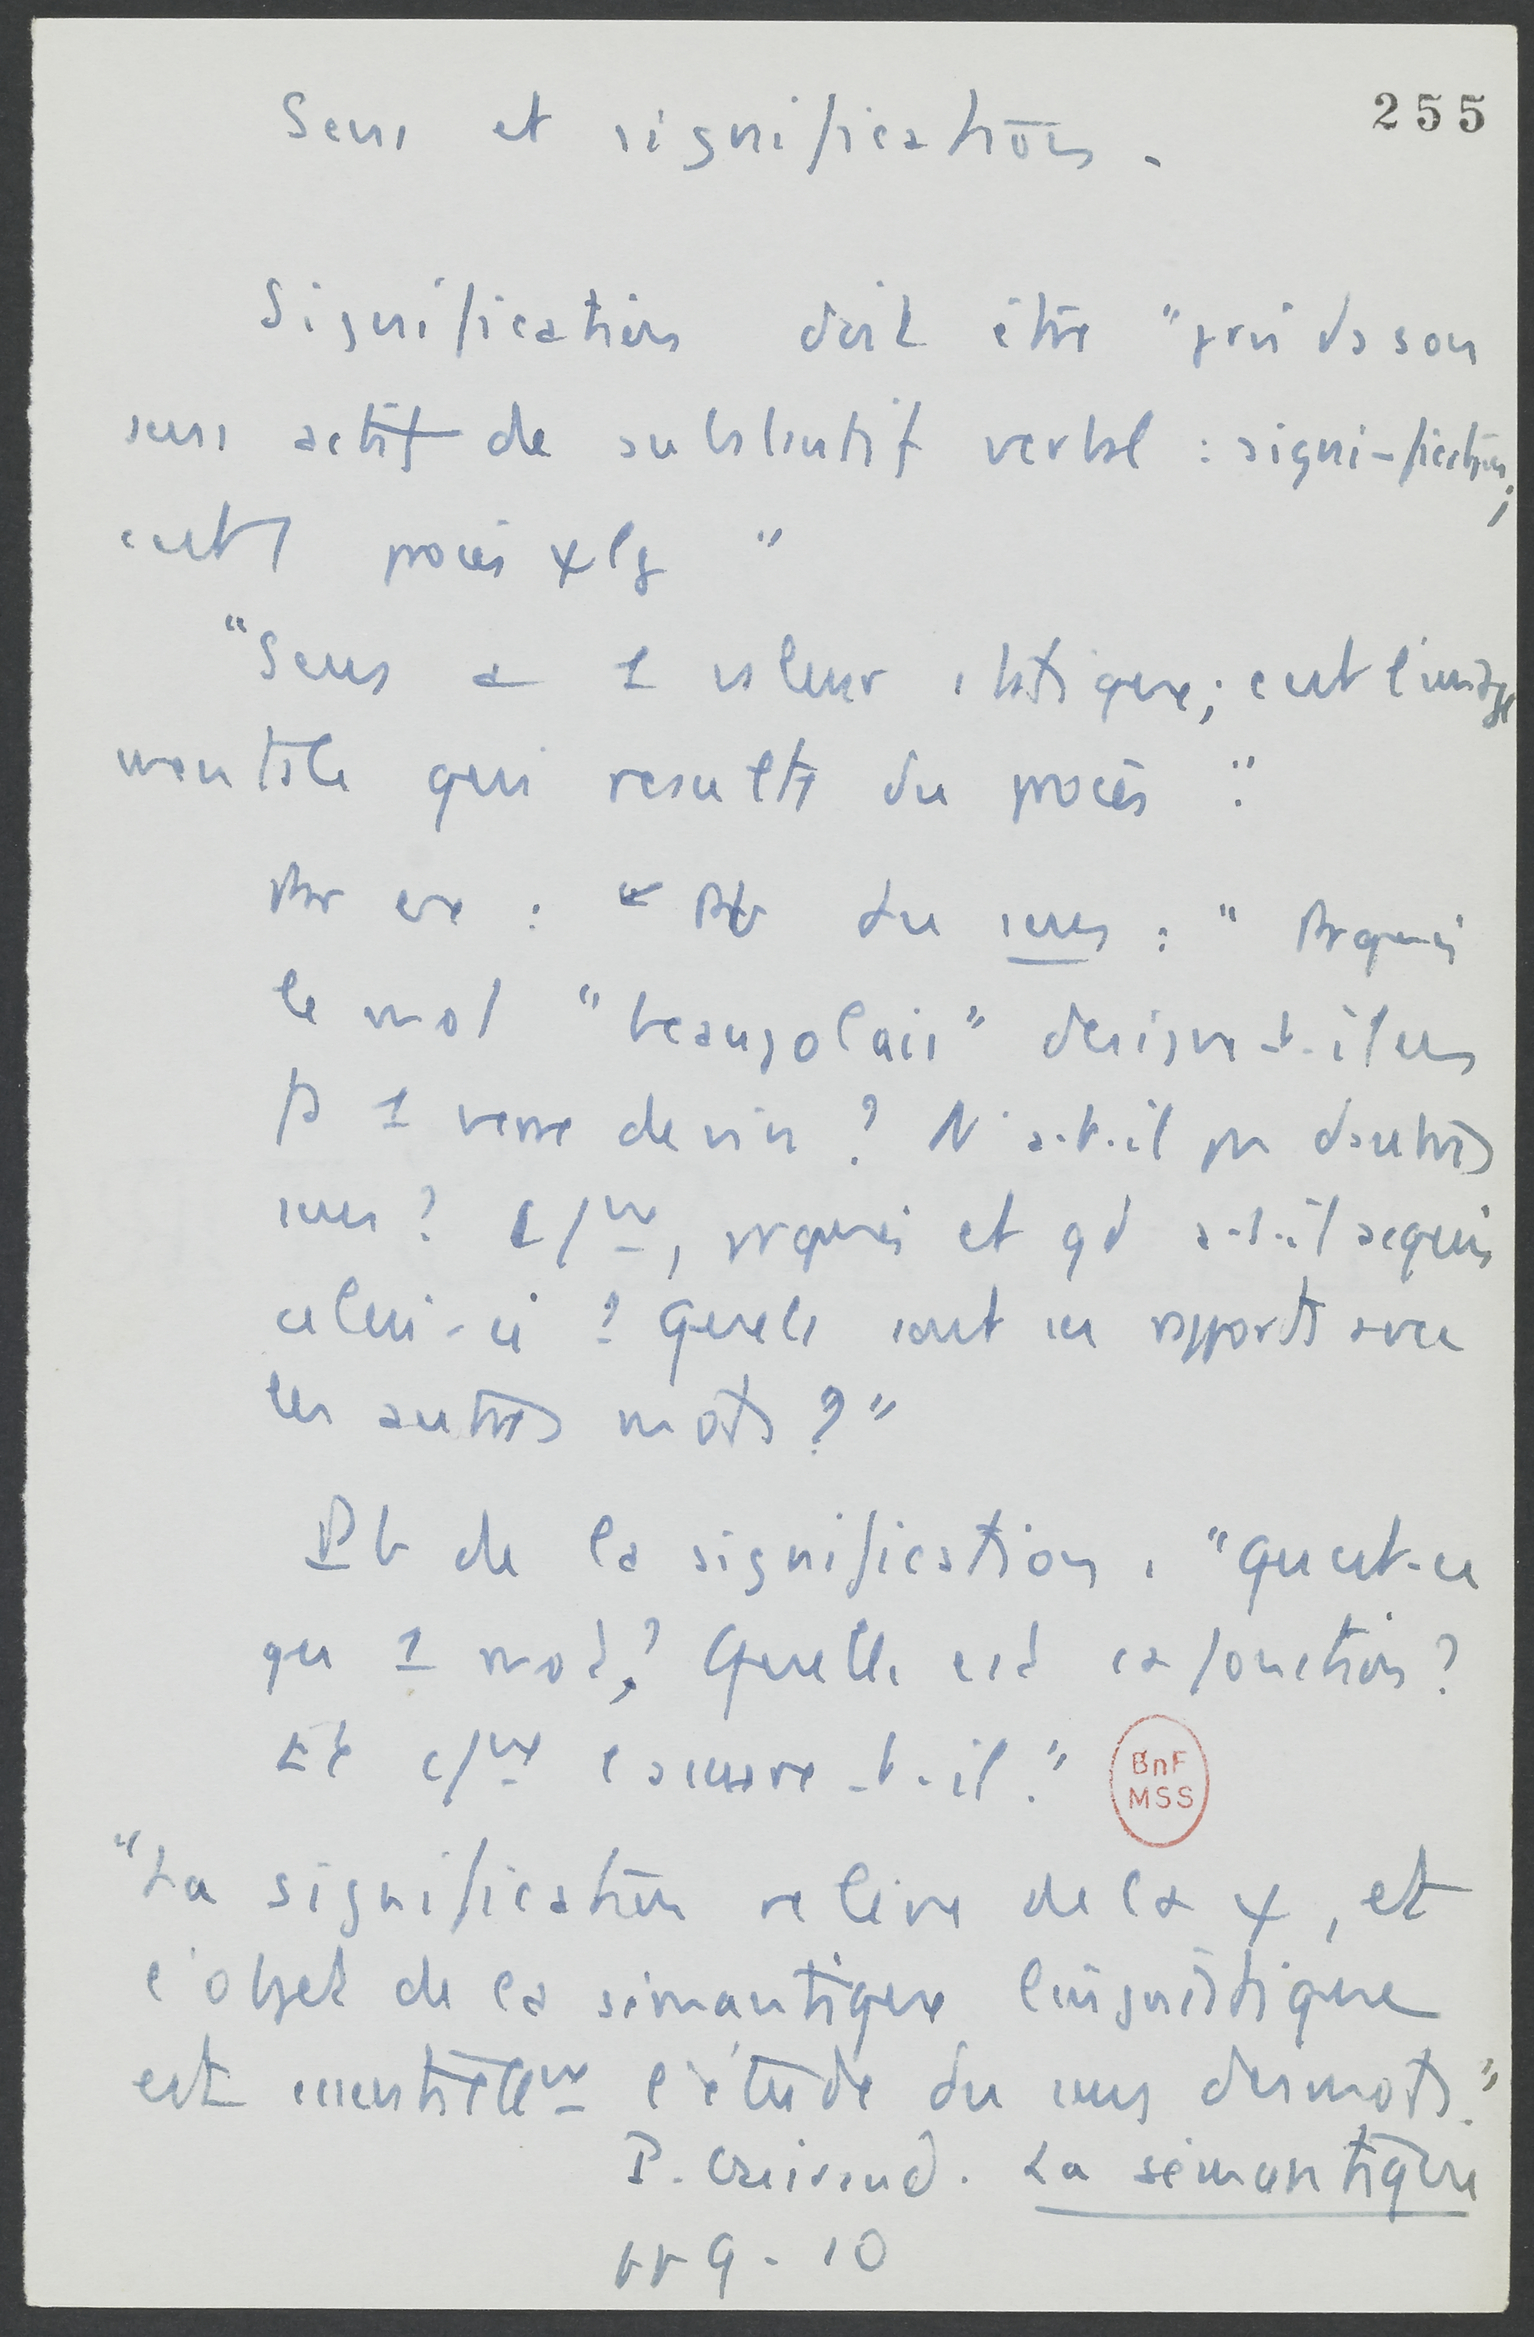 255
Sens et signification.
Signification doit être "pris ds son
sens actif de substantif verbal : signi-fication;
c'est 1 procès ψlg "
"Sens a 1 valeur statique; c'est l'image
mentale qui résulte du procès".
Par ex : " Pb du sens : " Pourquoi
le mot "beaujolais" désigne-t-il
1 verre de vin ? N'a-t-il pas d'autres
sens ? C/m, pourquoi et qd a-t-il acquis
celui-ci ? Quels sont ses rapports avec
les autres mots ?"
Pb de la signification. "Qu'est-ce
qu 1 mot ? Quelle est sa fonction ?
Et c/m l'assure-t-il."
BnF
MSS
"La signification relève de la ψ, et
l'objet de la sémantique linguistique
est essentiellem l'étude du sens des mots."
P. Guiraud. La sémantique
pp 9-10